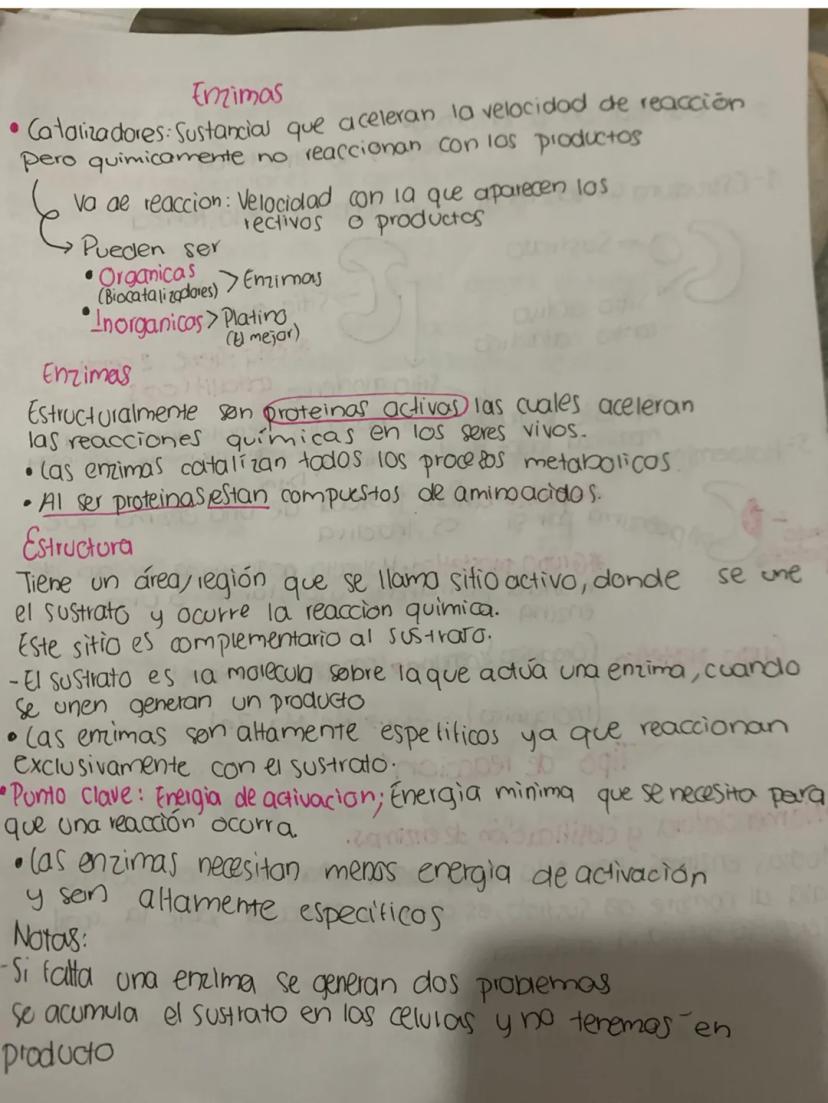 Enzimas
• Catalizadores: Sustancias que aceleran la velocidad de reacción
pero quimicamente no reaccionan con los productos
Va de reaccion: Velocidad con la que aparecen los
rectivos o productos
→ Pueden ser
• Organicas > Enzimas
(Biocatalizadores)
• Inorganicos > Platino
(El mejor)
Enzimas
Estructuralmente son proteinas activas las cuales aceleran
las reacciones químicas en los seres vivos.
• Las enzimas catalizan todos los procesos metabolicos
• Al ser proteinas estan compuestos de aminoacidos.
Estructura
Tiene un área/región que se llama sitio activo, donde se une
el sustrato y ocurre la reaccion química.
Este sitio es complementario al sustrato.
- El sustrato es la molecula sobre la que actúa una enzima, cuando
se unen generan un producto
• Las enzimas son altamente especificos ya que reaccionan
exclusivamente con el sustrato.
• Punto clave: Energia de activacion; Energia minima que se necesita para
que una reacción ocurra.
• Las enzimas necesitan menos energia de activación
y son altamente especificos
Notas:
- Si falta una enzima se generan dos problemas
se acumula el sustrato en las celulas y no tenemos en
producto